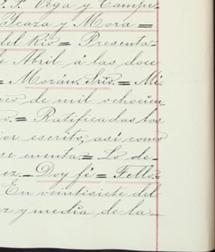 P. Vega y Campu
Icaza y Mora =
del Rio = Presenta-
e Abril á las doce
= Morán, Srio. = Mé
de mil ochocien
o. = Ratificadas las
escrito, así como
se cuenta. = Lo de-
ez. = Doy fé = Feliz
En veintisiete del
z y media de la